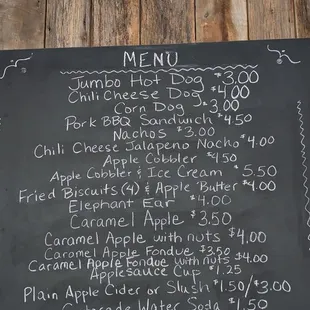 MENU
Jumbo Hot Dog $3.00
Chili Cheese Dog $4.00
Corn Dog $3.00
Pork BBQ Sandwich $4.50
Nachos $3.00
Chili Cheese Jalapeno Nacho $4.00
Apple Cobbler $4.50
Apple Cobbler & Ice Cream $5.50
Fried Biscuits (4) & Apple Butter $4.00
Elephant Ear $4.00
Caramel Apple $3.50
Caramel Apple with nuts $4.00
Caramel Apple Fondue $3.50
Caramel Apple Fondue with nuts $4.00
Applesauce Cup $1.25
Plain Apple Cider or Slush $1.50/$3.00
Gatorade Water Soda $1.50